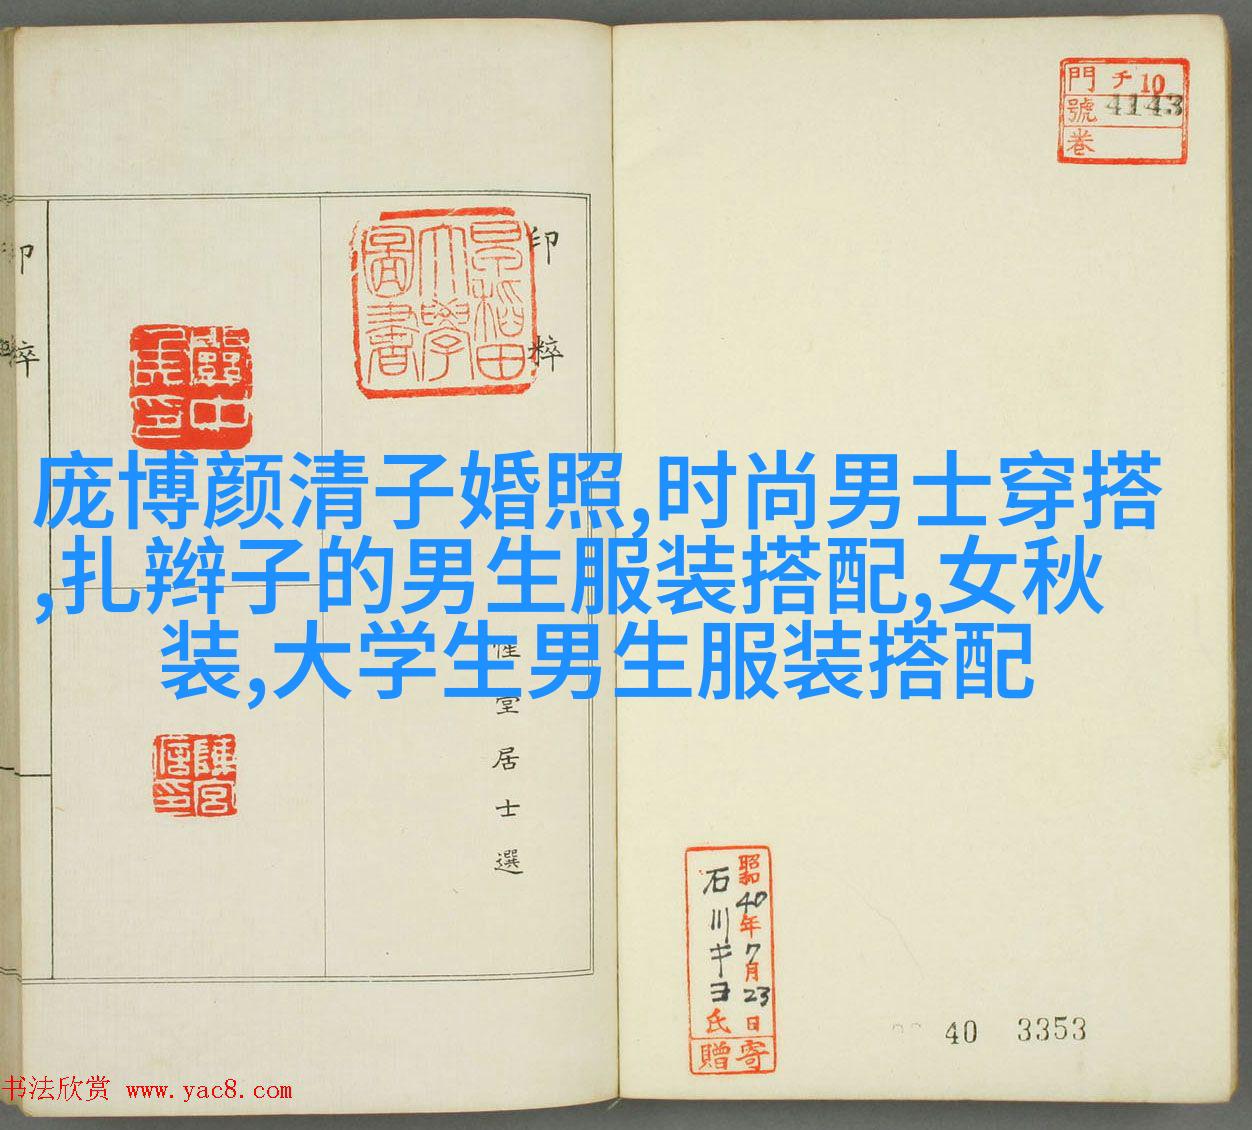 門 チ 10
號 4143
卷
印粹
印粹
早稻田
大學
圖書
庞博颜清子婚照,时尚男士穿搭
,扎辫子的男生服装搭配,女秋
装,大学生男生服装搭配
性堂居士選
陳宮
信印
昭和40年7月23日
石川キヨ氏
寄贈
40 3353
书法欣赏 www.yac8.com